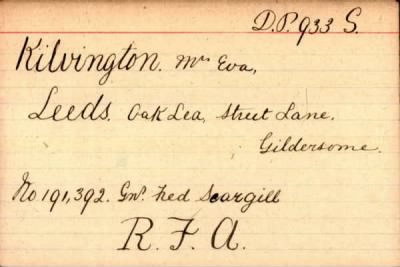 D.P. 933 S.
Kilvington. Mrs Eva,
Leeds. Oak Lea, Street Lane.
Gildersome.
No 191,392. Gnr. Fred Scargill
R. F. A.